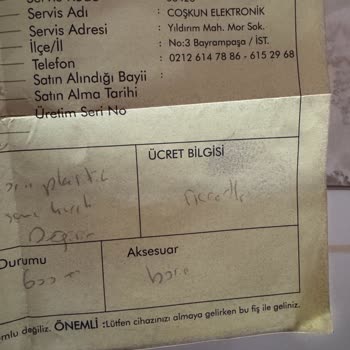 Servis Adı : COŞKUN ELEKTRONİK
Servis Adresi : Yıldırım Mah. Mor Sok.
İlçe/İl No:3 Bayrampaşa / İST.
Telefon : 0212 614 78 86 - 615 29 68
Satın Alındığı Bayii :
Satın Alma Tarihi
Üretim Seri No
ÜCRET BİLGİSİ
plastik
ücretli
Durumu
Aksesuar
değiliz. ÖNEMLİ :Lütfen cihazınızı almaya gelirken bu fiş ile geliniz.